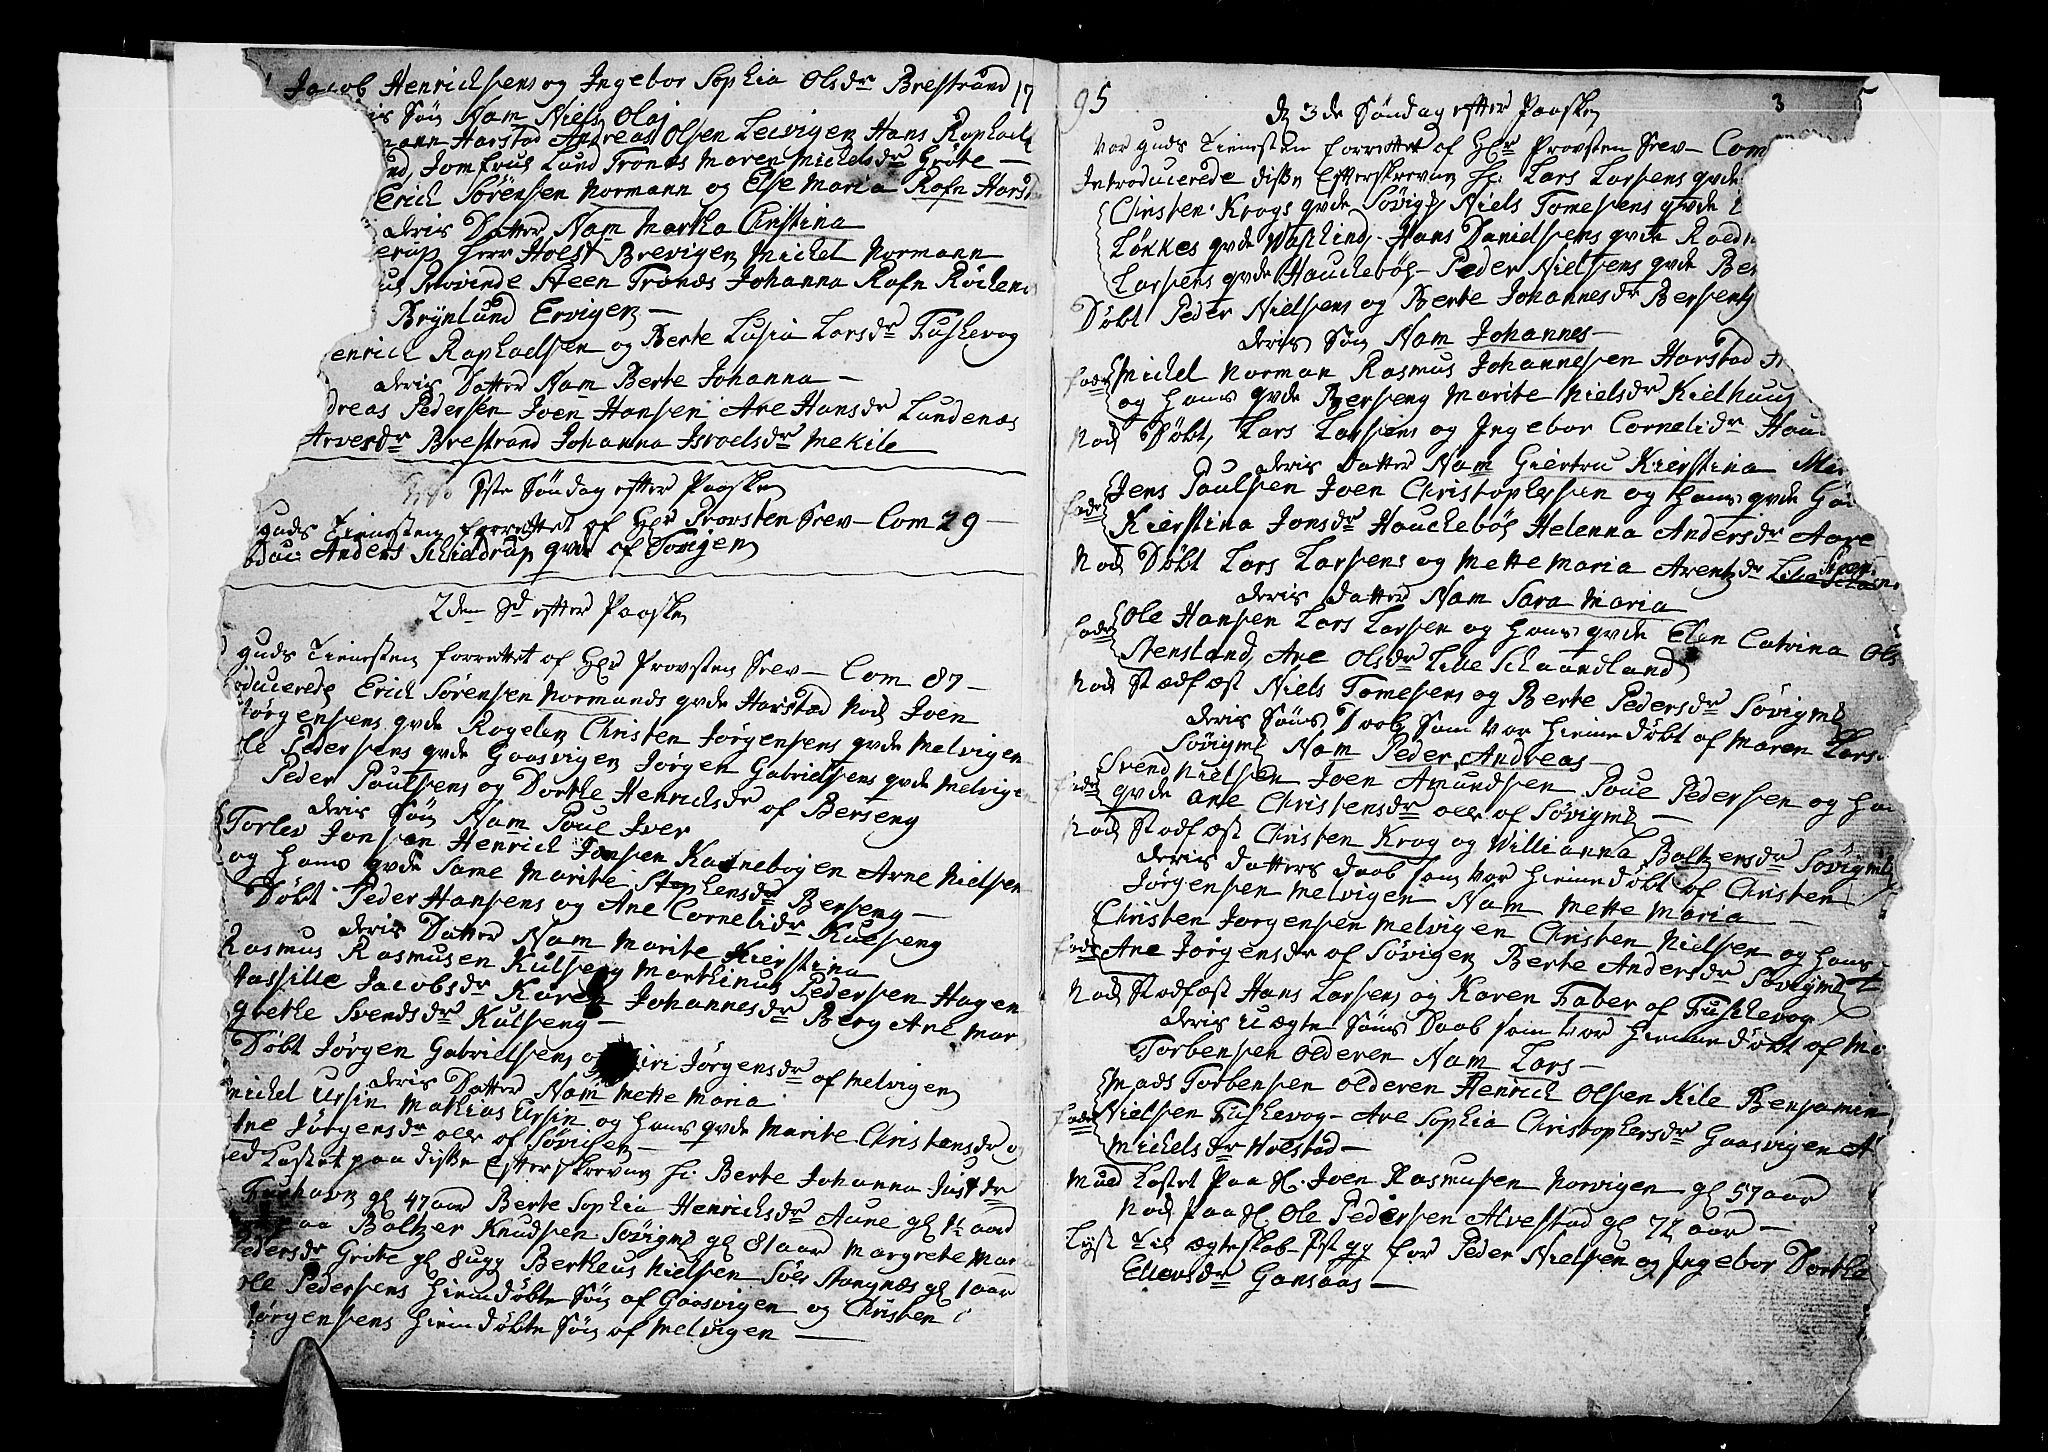 Jacob Henrichsens og Ingebor Sophia Olsdr Brestrand 17
is Søn Nam Niels Olaj
mann Harstad Andreas Olsen Leevigen Hans Raphael
nd, Jomfrue Lund Tronæs Maren Michelsdr Gröte –
Erich Sörensen Normann og Else Maria Rafn Harst
deris Datter Nam Martha Christina
erup Herr Holst Brevigen Michel Normann
Aeen Tronæs Johanna Rafn Röckenes
Brynlund Ervigen –
enrich Raphaelsen og Berte Lusia Larsdr Fuskevog
deris Datter Nam Berte Johanna –
dreas Pedersen Joen Hansen Ane Hansdr Lundenæs
Arnesdr Brestrand Johanna Israelsdr Mekile
1ste Søndag efter Paaske
guds Tienesten forrettet af Hr Provsten Srev – Com 29 –
oduc: Anders Schieldrup qvde af Torigen
2den Sd efter Paaske
guds Tienesten forrettet af Hr Provsten Srev – Com 87 –
oducerede Erich Sörensen Normands qvde Harstad Nock Joen
Jörgensens qvde Rogelen Christen Jörgensens qvde Melvigen
le Pedersens qvde Gaasvigen Jörgen Gabrielsens qvde Melvigen
Peder Paulsens og Dorthe Henrichsdr af Berseng
deris Søn Nam Poul Iver
Torlev Jonsen Henrich Jonsen Kanebogen Arne Nielsen
og Hans qvde Same Marite Stephensdr Berseng –
Døbt Peder Hansens og Ane Cornelidr Kulseng
deris Datter Nam Marite Kierstina
Rasmus Rasmusen Kulseng Marthinus Pedersen Hagen
Hassille Jacobsdr Karen Johannesdr Berg Ane Mar
grethe Svendsdr Kulseng –
Døbt Jörgen Gabrielsens og Siri Jörgensdr af Melvigen
deris Datter Nam Mette Maria
Michel Ursin Mathias Ursin og Hans qvde Marite Christensdr
Ane Jörgensdr alle af Sövigen –
ed Kastet paa disse Efterskrevne s: Berte Johanna Justdr
gl 47 aar Berte Sophia Henrichsdr Aune gl aar
aa Baltzer Knudsen Sövigen gl 81 aar Margrete Mar
Pedersdr Gröte gl 8 ugg Bertheus Nielsen Stangnæs gl 1 aar
ole Pedersens Hiemdøbte Søn af Gaasvigen og Christen
Jörgensens Hiemdøbte Søn af Melvigen –
95 3
D 3de Søndag efter Paaske
Var guds Tienesten forrettet af Hr Provsten Srev – Com
Introducerede disse Efterskrevne s: Lars Larsens qvde
Christen Krogs qvde Sövigen Niels Tomesens qvde
Lökkes qvde Hans Danielsens qvde
Larsens qvde Hauckebös – Peder Nielsens qvde Ber
Døbt Peder Nielsens og Berte Johannesdr Berseng
deris Søn Nam Johannes –
fadr Michel Norman Rasmus Johannesen Harstad
og Hans qvde Berseng Marite Nielsdr Kielhaug
Nock Døbt, Lars Larsens og Ingebor Cornelidr Hauc
deris Datter Nam Giertru Kierstina
fadr Jens Paulsen Joen Christophersen og Hans qvde
Kierstina Jonsdr Hauckebös Helenna Andersdr Aare
Nock Døbt Lars Larsens og Mette Maria Arentzdr
deris Datter Nam Sara Maria
fadr Ole Hansen Lars Larsen og Hans qvde Elen Catrina Ols
Stensland, Ane Olsdr Lille Schaandland
Nock Stadfæst Niels Tomesens og Berte Pedersdr Sövigen
deris Søns Daab Som var Hiemedøbt af Maren Lars
Sövigen Nam Peder Andreas –
fadr Svend Nielsen Joen Amundsen Poul Pedersen og Hans
qvde Ane Christensdr alle af Sövigen –
Nock Stadfæst Christen Krog og Willianna Baltzersdr Sövigen
deris Datters Daab som var Hiemedøbt af Christen
Jörgensen Melvigen Nam Mette Maria –
fadr Christen Jörgensen Melvigen Christen Nielsen og Hans
Ane Jörgensdr af Sövigen Berte Andersdr Sövigen
Nock Stadfæst Hans Larsens og Karen Faber af Fuskevog
deris uægte Søns Daab som var Hiemedøbt af M
Torbensen Olderen Nam Lars –
fadr Mads Torbensen Olderen Henrich Olsen Kile Benjamin
Nielsen Fuskevog – Ane Sophia Christophersdr Gaasvigen
Michelsdr Wolstad –
Mued Kastet Paa Joen Rasmusen Norvigen gl 57 aar
Nock paa Ole Pedersen Alvestad gl 72 aar –
Lyst Til ægteskab – 1st gg for Peder Nielsen og Ingebor Dorthe
Ellensdr Gansaas –